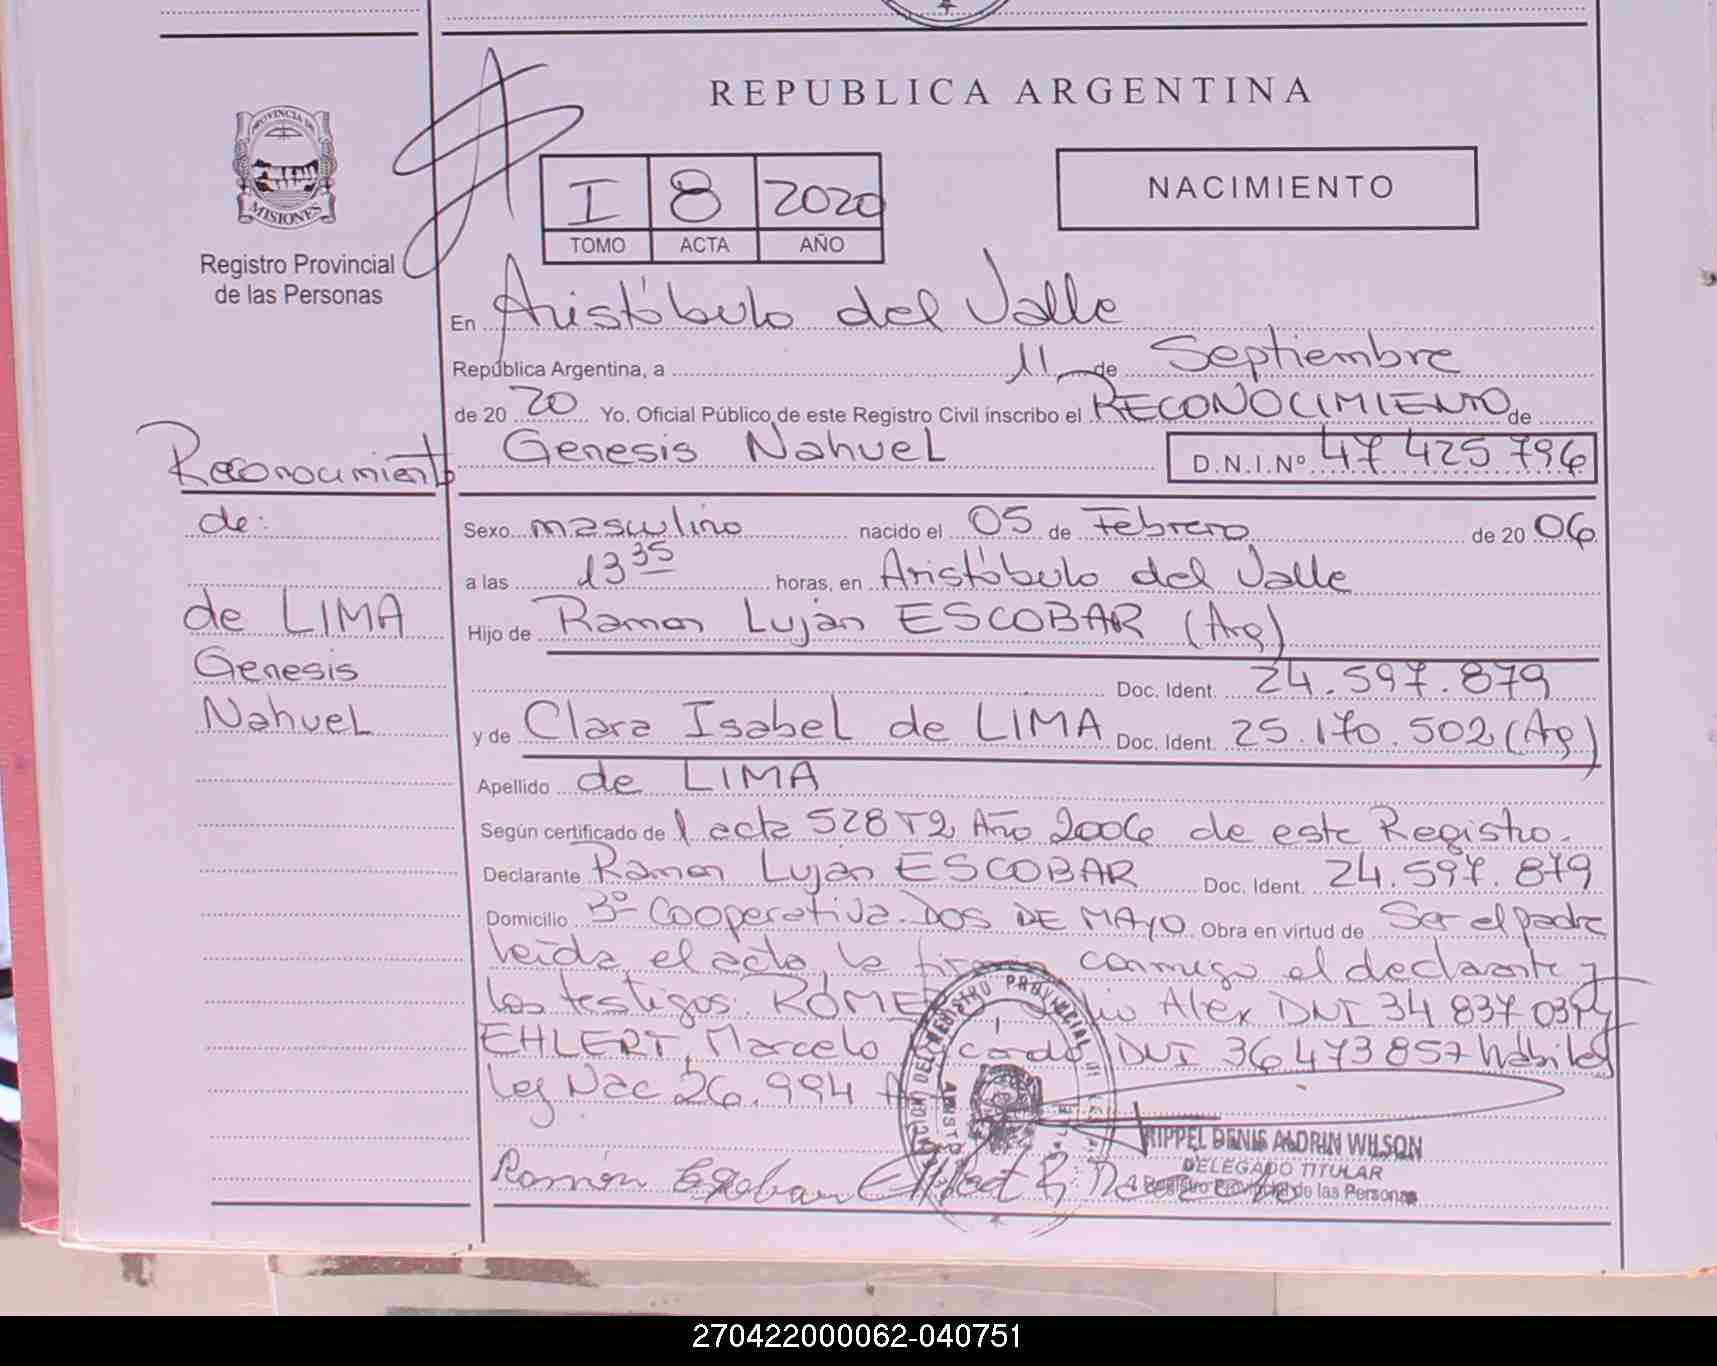 REPUBLICA ARGENTINA
PROVINCIA DE
MISIONES
Registro Provincial
de las Personas
I 8 2020
TOMO ACTA AÑO
NACIMIENTO
En Aristóbulo del Valle
República Argentina, a 11 de Septiembre
de 20 20 Yo, Oficial Público de este Registro Civil inscribo el RECONOCIMIENTO de
Genesis NahueL D.N.I.Nº 47 425 796
Reconocimiento
de:
de LIMA
Genesis
NahueL
Sexo masculino nacido el 05 de Febrero de 20 06
a las 13 35 horas, en Aristóbulo del Valle
Hijo de Ramon Luján ESCOBAR (Arg)
Doc. Ident. 24.597.879
y de Clara Isabel de LIMA Doc. Ident. 25.170.502 (Arg)
Apellido de LIMA
Según certificado de acta 528 T2 Año 2006 de este Registro.
Declarante Ramon Luján ESCOBAR Doc. Ident. 24.597.879
Domicilio Bº Cooperativa. DOS DE MAYO Obra en virtud de Ser el padre
leida el acta, la firma conmigo el declarante y
los testigos: Alex DNI 34 837 039
EHLERT, Marcelo DNI 36 473 857 hábiles
Ley Nac 26.994
REGISTRO PROVINCIAL
RIPPEL DENIS ALDRIN WILSON
DELEGADO TITULAR
Registro Provincial de las Personas
Ramón Escobar
270422000062-040751